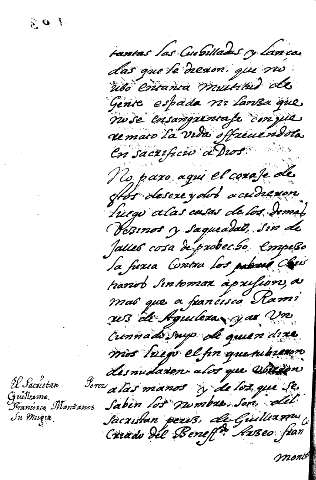 tantas las Cuchilladas y lança
das que le dieron, que no
ubo entanta multitud de
Gente espada ni lanza que
no se ensangrentase con que
remato la vida offreciendola
en sacrificio a Dios.
No paro aqui el coraje de
estos descreydos acudieron
luego a las casas de los demas
Vezinos y saqueadas, sin de
jalles cosa de probecho empezo
la furia contra los Chris
tianos sin tomar a prision, a
mas que a francisco Rami
rez de Aguilera, y a Un
Cunnado suyo de quien dire
mos luego el fin que tubieron
desnudaron a los que
a las manos y de los que se
saben los nombres, son, del
sacristan perez, de Guillermo
Criado del Benefdo. fran
El Sacristan Perez
Guillermo
Francisco Montanes
Su Muger